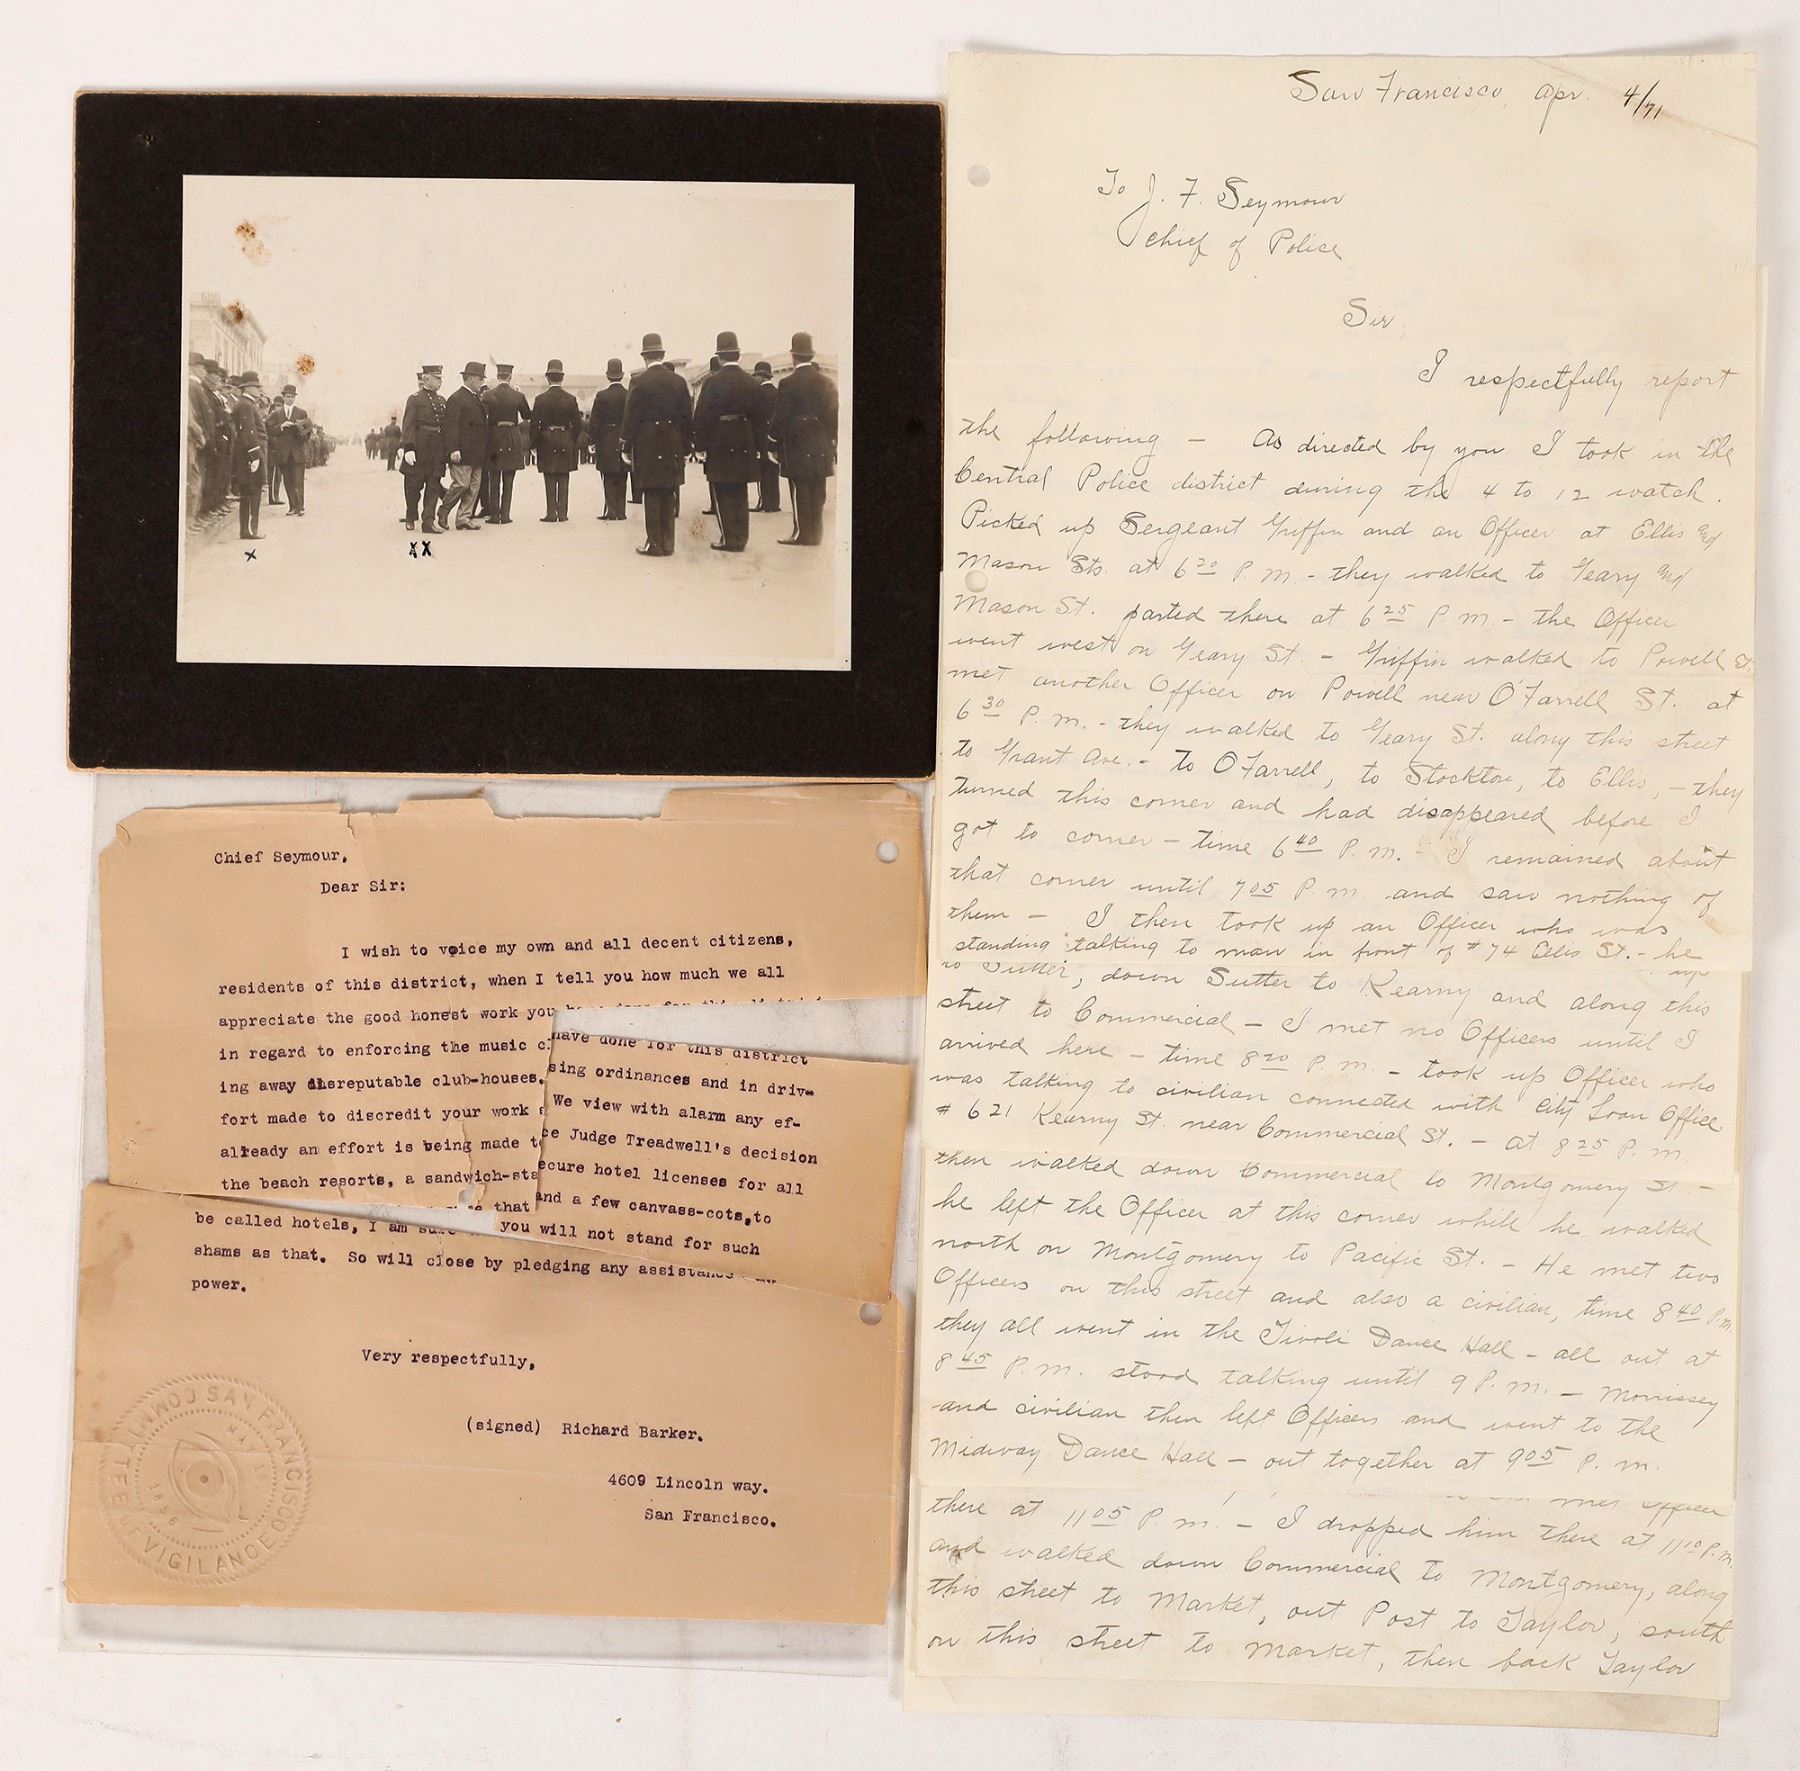 x
XX
Chief Seymour,
Dear Sir:
I wish to voice my own and all decent citizens,
residents of this district, when I tell you how much we all
appreciate the good honest work you
have done for this district
in regard to enforcing the music
sing ordinances and in driv-
ing away disreputable club-houses.
We view with alarm any ef-
fort made to discredit your work
ce Judge Treadwell's decision
already an effort is being made t
ecure hotel licenses for all
the beach resorts, a sandwich-sta
and a few canvass-cots, to
that
be called hotels, I am sure
you will not stand for such
shams as that. So will close by pledging any assistance
power.
Very respectfully,
(signed) Richard Barker.
4609 Lincoln way.
San Francisco.
COMMITTEE OF VIGILANCE SAN FRANCISCO
San Francisco, Apr. 4/11
To J. F. Seymour
Chief of Police
Sir,
I respectfully report
the following - As directed by you I took in the
Central Police district during the 4 to 12 watch.
Picked up Sergeant Griffin and an Officer at Ellis and
Mason Sts. at 6 20 P. M. - they walked to Geary and
Mason St. parted there at 6 25 P. M. - the Officer
went west on Geary St. - Griffin walked to Powell St.
met another Officer on Powell near O'Farrell St. at
6 30 P. M. - they walked to Geary St. along this street
to Grant Ave. - to O'Farrell, to Stockton, to Ellis, - they
turned this corner and had disappeared before I
got to corner - time 6 40 P. M. - I remained about
that corner until 7 05 P. M. and saw nothing of
them - I then took up an Officer who was
standing talking to man in front of #74 Ellis St. - he
up
to Sutter, down Sutter to Kearny and along this
street to Commercial - I met no Officers until I
arrived here - time 8 20 P. M. - took up Officer who
was talking to civilian connected with City Loan Office
# 621 Kearny St. near Commercial St. - at 8 25 P. M.
then walked down Commercial to Montgomery St -
he left the Officer at this corner while he walked
north on Montgomery to Pacific St. - He met two
Officers on this street and also a civilian, time 8 40 P. M.
they all went in the Tivoli Dance Hall - all out at
8 45 P. M. stood talking until 9 P. M. - Morrissey
and civilian then left Officers and went to the
Midway Dance Hall - out together at 9 05 P. M.
met Officer
there at 11 05 P. M. - I dropped him there at 11 10 P. M.
and walked down Commercial to Montgomery, along
this street to Market, out Post to Taylor, south
on this street to Market, then back Taylor